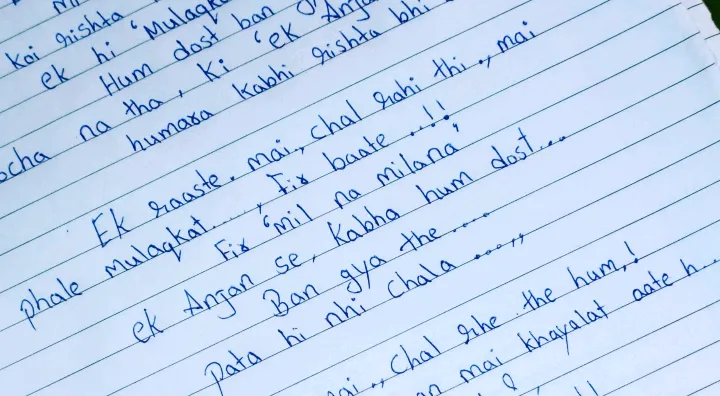 Kai rishta
ek hi 'Mulaqka
Hum dost ban
ocha na tha, Ki 'ek Anja
humara kabhi rishta bhi
Ek raaste. mai., chal rahi thi ., mai
phale mulaqkat....., Fir baate ...!!
Fir "mil na milana'
ek Anjan se, Kabha hum dost...
Ban gya the....
Pata hi nhi chala ....,,
ai., Chal rhe the hum,!
an mai khayalat aate h...